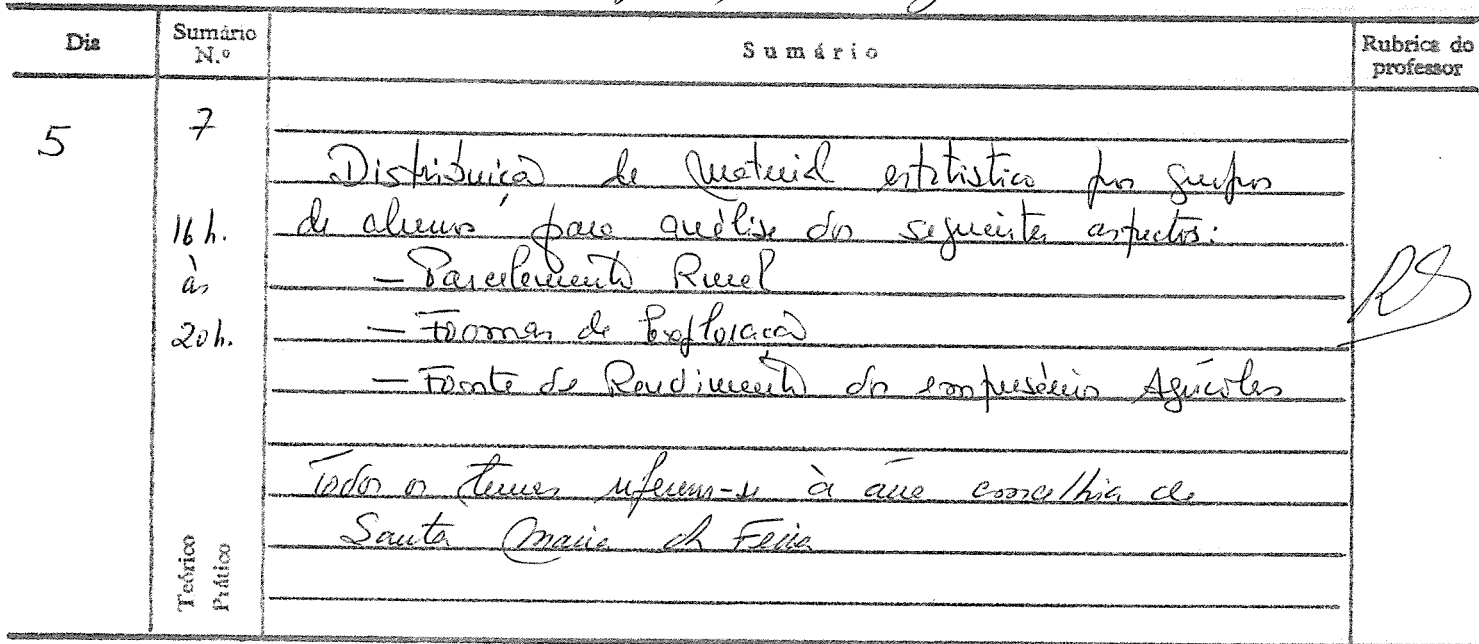 Dia
Sumário N.º
Sumário
Rubrica do professor
5
7
16 h.
às
20 h.
Teórico
Prático
Distribuição de Material estatístico por grupos
de alunos para análise dos seguintes aspectos:
— Parcelamento Rural
— Formas de Exploração
— Fonte de Rendimento dos empresários Agrícolas
Todos os temas referem-se à área concelhia de
Santa Maria da Feira
RS